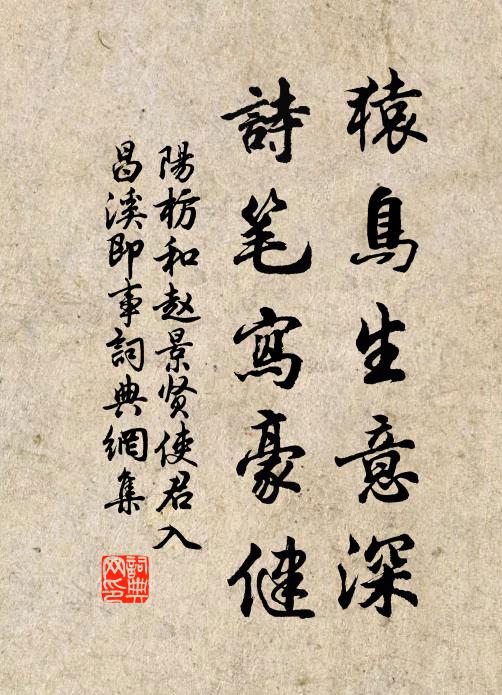 猿鳥生意深
詩笔寫豪健
陽枋和赵景贤使君入
昌溪即事詞典網集
詞典网印